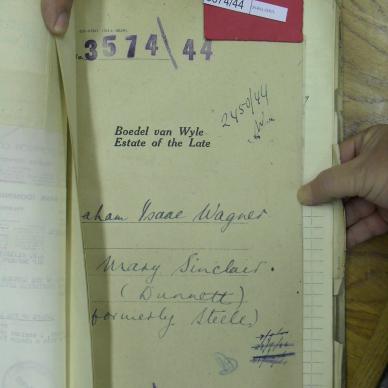 3574/44
3574/44
2450/44
Boedel van Wyle
Estate of the Late
aham Isaac Wagner
Mary Sinclair.
(Dunnett)
formerly Steele)